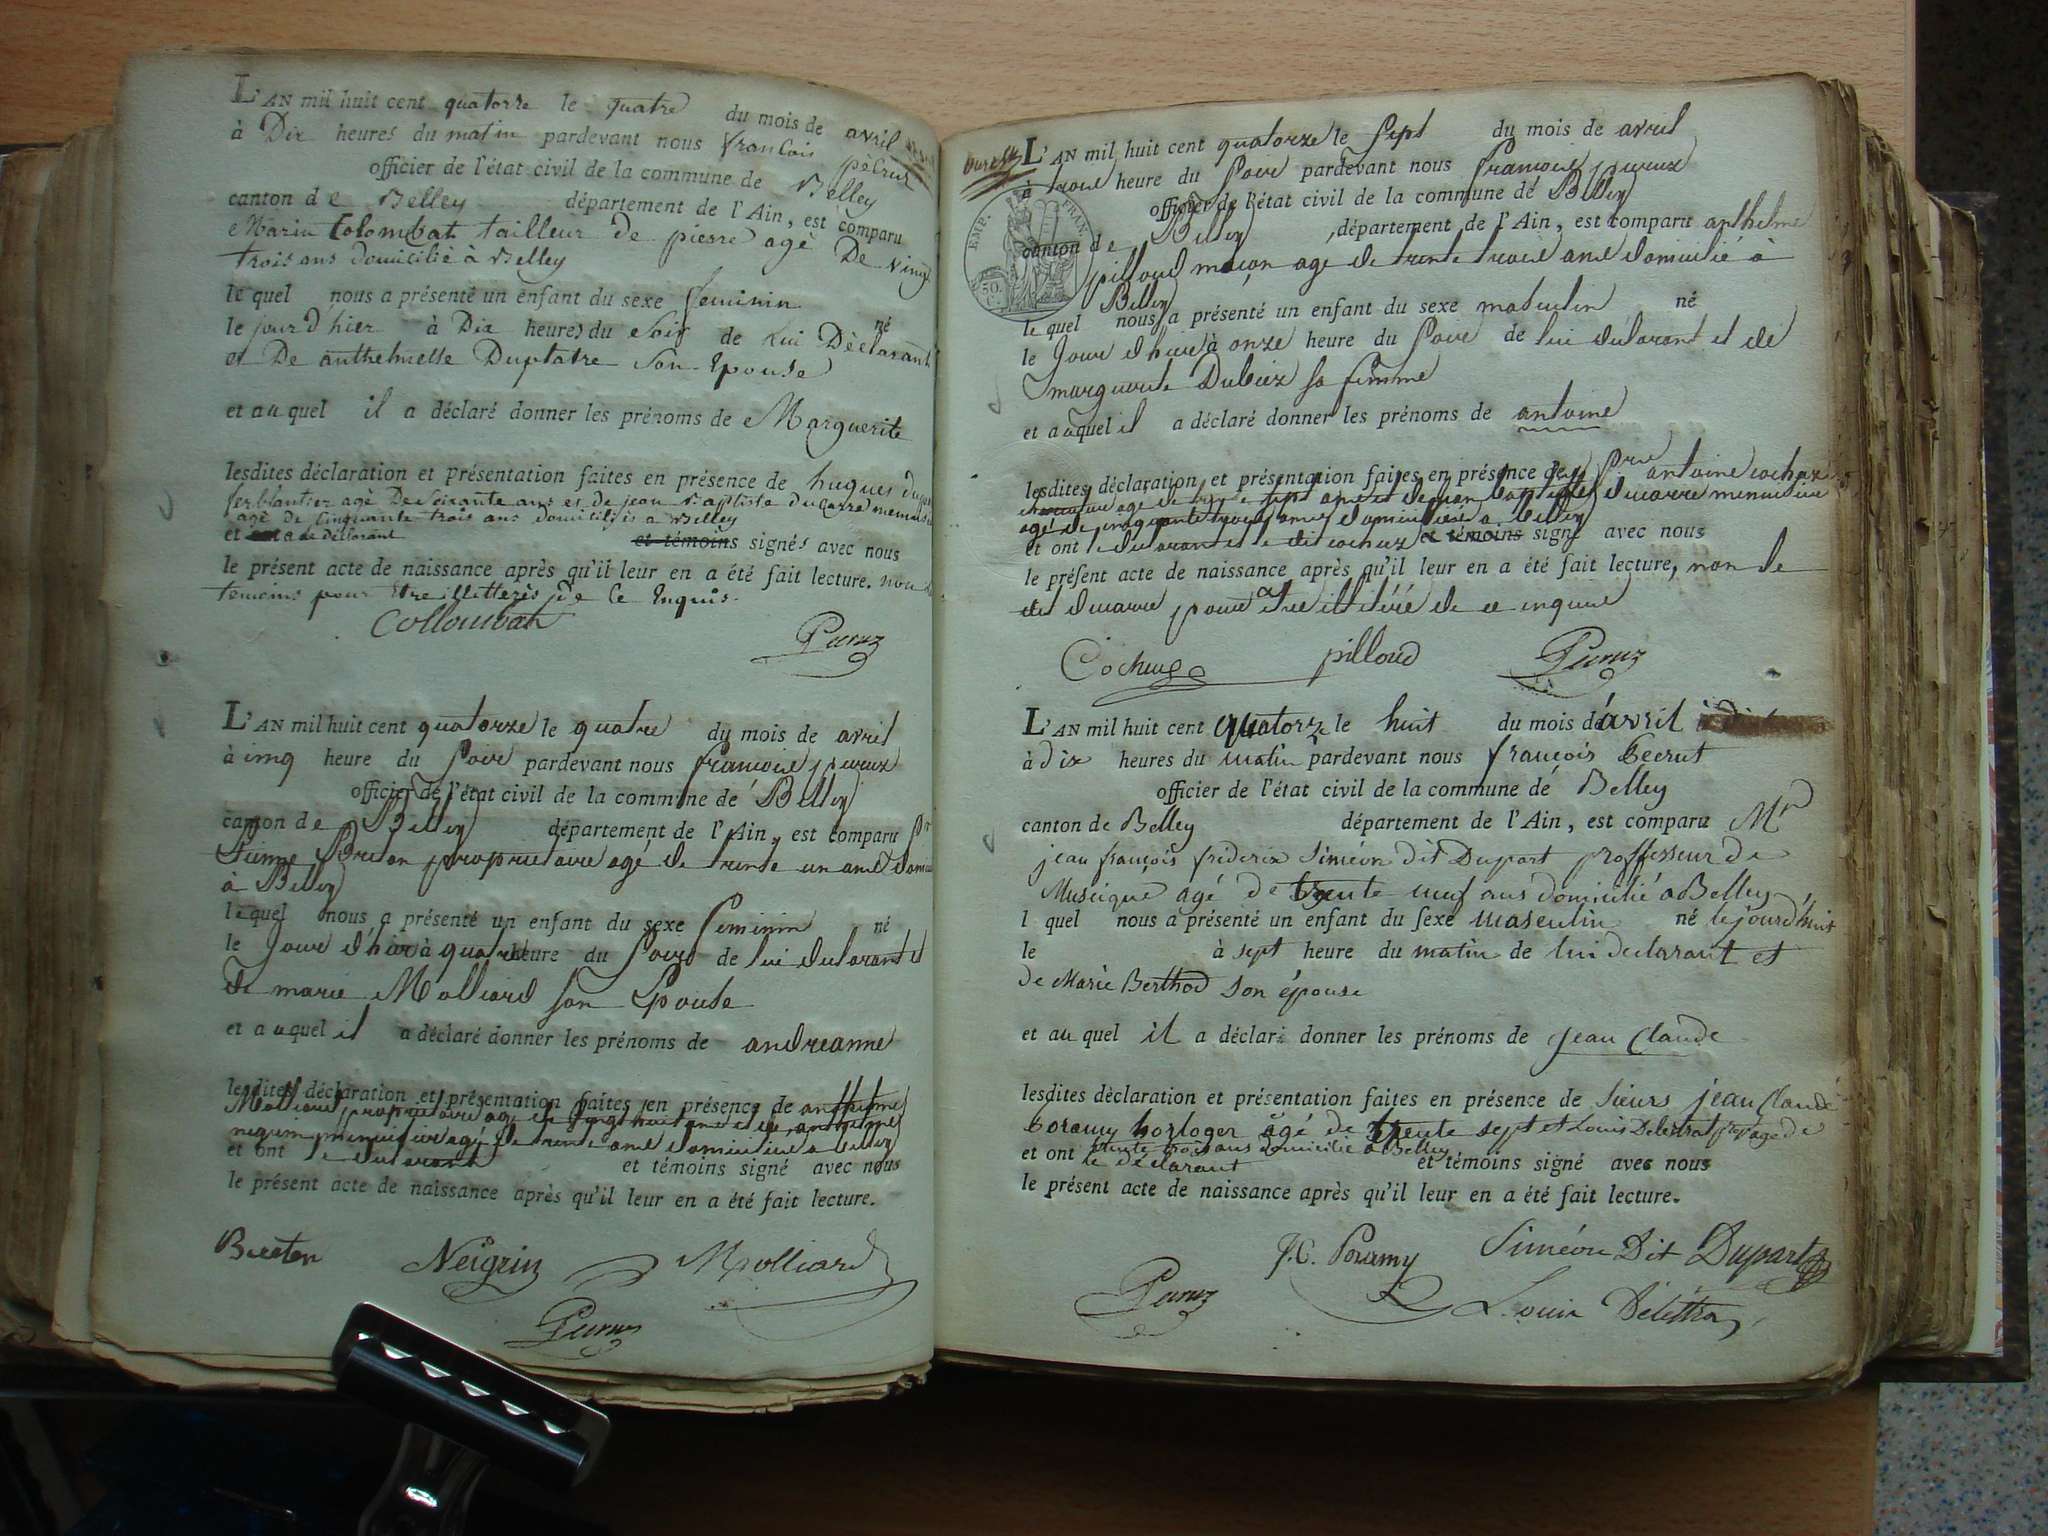 L'AN mil huit cent quatorze le quatre du mois de avril
à Dix heures du matin pardevant nous francois pècrux
officier de l'état civil de la commune de Belley
canton de Belley département de l'Ain, est comparu
Marin Colombat tailleur de pierre agè De vingt
trois ans domicilié à Belley
le quel nous a présenté un enfant du sexe feminin né
le jour d'hier à Dix heures du soir de Lui Dèclarant
et De anthelmette Duplatre son Epouse
et au quel il a déclaré donner les prénoms de Marguerite
lesdites déclaration et présentation faites en présence de hugues
ferblantier agè De soixante ans et de jean Baptiste Ducarre menuisier
agè de Cinquante trois ans domiciliés a Belley
et a le déclarant et témoins signés avec nous
le présent acte de naissance après qu'il leur en a été fait lecture. non
temoins pour Etre illitterès de Ce Enquis.
Collombat
Pecruz
L'AN mil huit cent quatorze le quatre du mois de avril
à cinq heure du soir pardevant nous francois pecrux
officier de l'état civil de la commune de Belley
canton de Belley département de l'Ain, est comparu Sr
Pierre Breton proprietaire agé de trente un ans
à Belley
le quel nous a présenté un enfant du sexe feminin né
le Jour d'hier à quatre heure du soir de lui declarant et
de marie Molliard son Epouse
et a uquel il a déclaré donner les prénoms de andreanne
lesdites déclaration et présentation faites en présence de anthelme
Molliard proprietaire agé de vingt huit ans et de anthelme
negrin menuisier agé de trente ans domiciliés a Belley
et ont le declarant et témoins signé avec nous
le présent acte de naissance après qu'il leur en a été fait lecture.
Breton Neigrin Molliard
Pecruz
L'AN mil huit cent quatorze le sept du mois de avril
à trois heure du soir pardevant nous francois pecrux
officier de l'état civil de la commune de Belley
canton de Belley, département de l'Ain, est comparu anthelme
pilloud maçon agé de trente trois ans domicilié à
Belley
le quel nous a présenté un enfant du sexe masculin né
le Jour d'hier à onze heure du soir de lui declarant et de
marguerite Dubiez sa femme
et a uquel il a déclaré donner les prénoms de antoine
lesdites déclaration et présentation faites en présence de antoine cochuz
agé de sept ans et de jean baptiste ducarre menuisier
agé de cinquante trois ans domiciliés a Belley
et ont le declarant et le dit cochuz et témoins signé avec nous
le présent acte de naissance après qu'il leur en a été fait lecture, non le
dit ducarre pour être illitéré de ce enquis
Cochuz pilloud Pecruz
EMP. FRAN.
50. C.
L'AN mil huit cent quatorze le huit du mois de avril
à dix heures du matin pardevant nous françois Pecrut
officier de l'état civil de la commune de Belley
canton de Belley département de l'Ain, est comparu Mr
jean françois friderix Siméon dit Dupart proffesseur de
Musicque agé de trente neuf ans domicilié a Belley
l quel nous a présenté un enfant du sexe masculin né le jourd'huit
le à sept heure du matin de lui declarant et
de Marie Berthod son épouse
et au quel il a déclaré donner les prénoms de jean Claude
lesdites déclaration et présentation faites en présence de sieurs jean Claude
Poramy horloger âgé de trente sept et Louis Delestrat agé de
trente trois ans domicilié a Belley
et ont le déclarant et témoins signé avec nous
le présent acte de naissance après qu'il leur en a été fait lecture.
J.C. Poramy Siméon Dit Dupart
Pecruz Louis Délestra